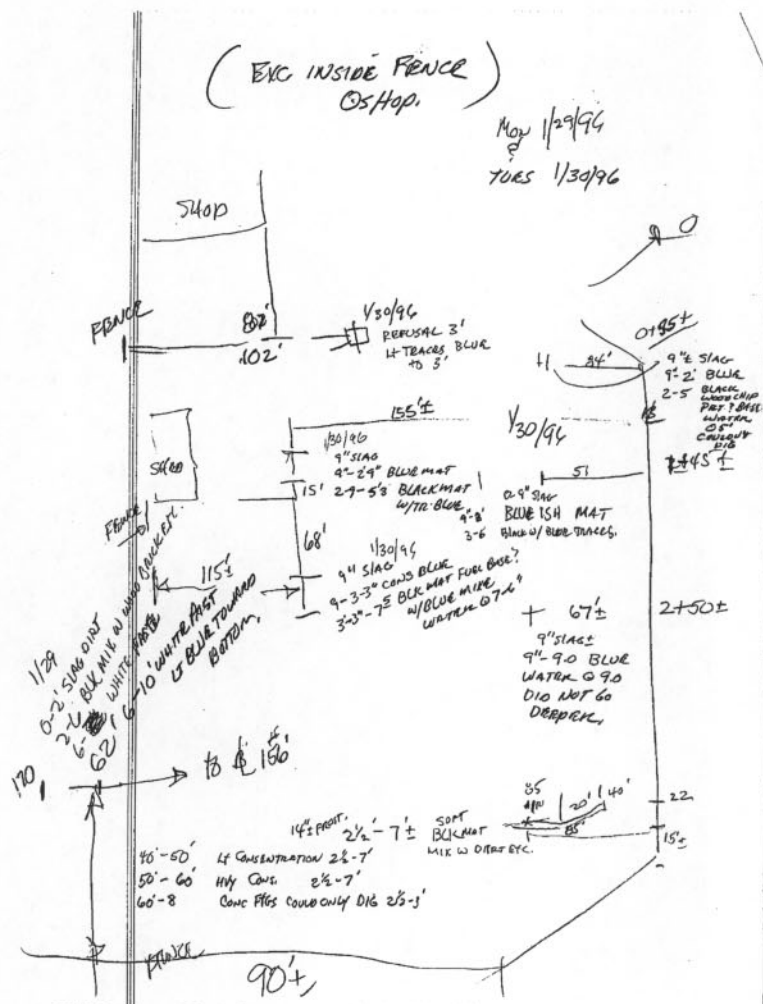 (EXC INSIDE FENCE)
@SHOP.
MON 1/29/96
&
TUES 1/30/96
SHOP
0
FENCE
802'
102'
1/30/96
REFUSAL 3'
LT TRACES BLUE
TO 3'
0+85±
84'
9"± SLAG
9"-2' BLUE
2-5 BLACK
WOODCHIP
WATER
@5'
COULDN'T
DIG
155'±
1/30/96
SHED
1/30/96
9" SLAG
9"-2'9" BLUE MAT
2-9-5'3" BLACK MAT
W/TR. BLUE
15'
51
+45'±
0-9" SLAG
9"-3'
BLUEISH MAT
3-6 BLACK W/ BLUE TRACES.
FENCE
68'
115'±
1/30/96
9" SLAG
9-3'-3" CONS BLUE
3'-3"-7 BLK MAT FUEL BASE?
W/BLUE MIXED
WATER @ 7'-6"
67'±
2+50±
9" SLAG±
9"-9.0 BLUE
WATER @ 9.0
DID NOT GO
DEEPER.
1/29
0-2' SLAG DIRT
2-6 BLK MIX W WOOD BRICK ETC.
6- WHITE PASTE
6-10' WHITE PAST
LT BLUE TOWARD
BOTTOM.
62'
170
TO ℄ 156'
14"± FROST.
2½'-7'±
SOFT
BLK MAT
MIX W DIRT ETC.
20'
40'
85'
22
15'±
40'-50' LT CONSENTRATION 2½-7'
50'-60' HVY CONS. 2½-7'
60'-8 CONC FTGS COULD ONLY DIG 2½-3'
FENCE
90'±